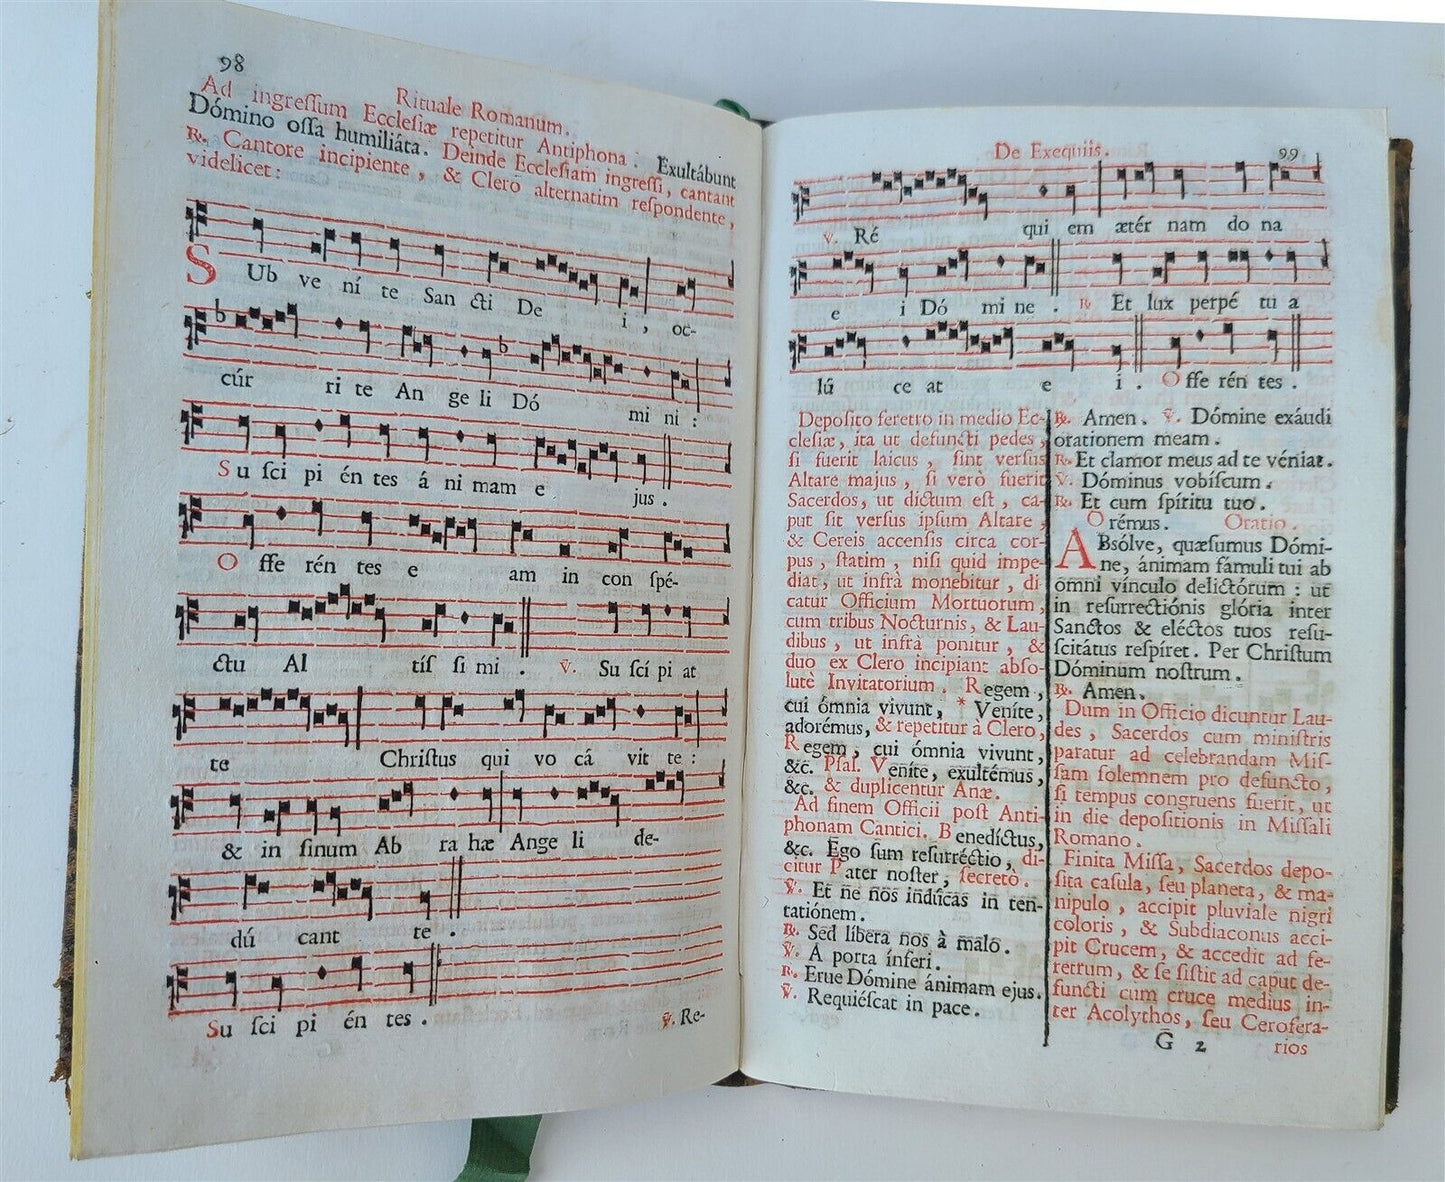 98
Rituale Romanum.
Ad ingreſſum Eccleſiæ repetitur Antiphona. Exultábunt
Dómino oſſa humiliáta. Deinde Eccleſiam ingreſſi, cantant
℟. Cantore incipiente, & Clero alternatim reſpondente,
videlicet:
SUb ve ní te San cti De i, oc-
cúr ri te An ge li Dó mi ni:
Su ſci pi én tes á ni mam e jus.
O ffe rén tes e am in con ſpé-
ctu Al tíſ ſi mi. ℣. Su ſcí pi at
te Chriſtus qui vo cá vit te:
& in ſinum Ab ra hæ Ange li de-
dú cant te.
Su ſci pi én tes.
℣. Re-
De Exequiis.
99
℣. Ré qui em ætér nam do na
e i Dó mi ne. ℟. Et lux perpé tu a
lú ce at e i. O ffe rén tes.
Depoſito feretro in medio Ec-
cleſiæ, ita ut defuncti pedes,
ſi fuerit laicus, ſint verſus
Altare majus, ſi verò fuerit
Sacerdos, ut dictum eſt, ca-
put ſit verſus ipſum Altare,
& Cereis accenſis circa cor-
pus, ſtatim, niſi quid impe-
diat, ut infrà monebitur, di-
catur Officium Mortuorum,
cum tribus Nocturnis, & Lau-
dibus, ut infrà ponitur, &
duo ex Clero incipiant abſo-
lutè Invitatorium. Regem,
cui ómnia vivunt, * Veníte,
adorémus, & repetitur à Clero,
Regem, cui ómnia vivunt,
&c. Pſal. Veníte, exultémus,
&c. & duplicentur Anæ.
Ad finem Officii poſt Anti-
phonam Cantici. Benedíctus,
&c. Ego ſum reſurréctio, di-
citur Pater noſter, ſecretò.
℣. Et ne nos indúcas in ten-
tatiónem.
℟. Sed líbera nos à malo.
℣. A porta ínferi.
℟. Erue Dómine ánimam ejus.
℣. Requiéſcat in pace.
℟. Amen. ℣. Dómine exáudi
orationem meam.
℟. Et clamor meus ad te véniat.
℣. Dóminus vobíſcum.
℟. Et cum ſpíritu tuo.
Orémus. Oratio.
ABsólve, quæſumus Dómi-
ne, ánimam fámuli tui ab
omni vínculo delictórum: ut
in reſurrectiónis glória inter
Sanctos & eléctos tuos reſu-
ſcitátus reſpíret. Per Chriſtum
Dóminum noſtrum.
℟. Amen.
Dum in Officio dicuntur Lau-
des, Sacerdos cum miniſtris
paratur ad celebrandam Miſ-
ſam ſolemnem pro defuncto,
ſi tempus congruens fuerit, ut
in die depoſitionis in Miſſali
Romano.
Finita Miſſa, Sacerdos depo-
ſita caſula, ſeu planeta, & ma-
nipulo, accipit pluviale nigri
coloris, & Subdiaconus acci-
pit Crucem, & accedit ad fe-
retrum, & ſe ſiſtit ad caput de-
functi cum cruce medius in-
ter Acolythos, ſeu Cerofera-
G 2
rios